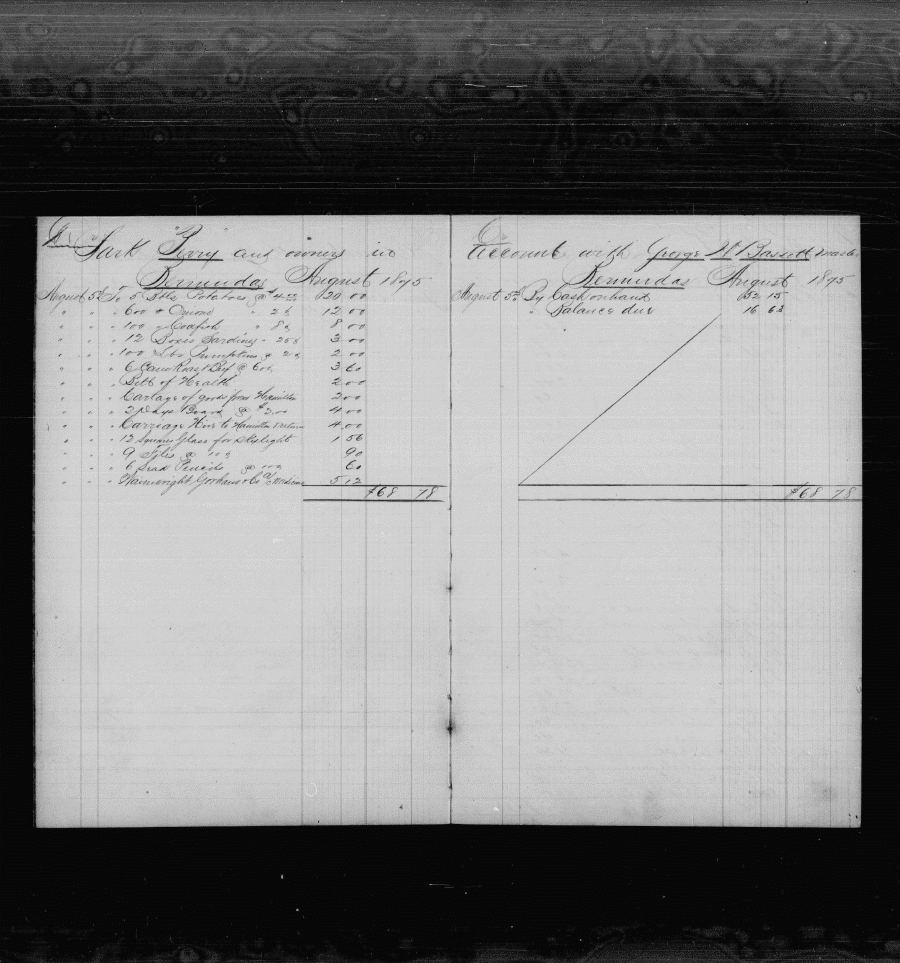 Dr. Bark "Perry" and owners in
Bermudas August 1875
August 5th To 5 Bbls Potatoes @ $4.00 20 00
" " " 600 " Onions " 2¢ 12 00
" " " 100 " Codfish " 8¢ 8 00
" " " 12 Boxes Sardines " 25¢ 3 00
" " " 100 Lbs Pumpkins @ 2¢ 2 00
" " " 6 Cans Roast Beef @ 60¢ 3 60
" " " Bill of Health 2 00
" " " Cartage of goods from Hamilton 2 00
" " " 2 Days Board @ $2.00 4 00
" " " Carriage Hire to Hamilton & return 4 00
" " " 12 Squares Glass for Skylight 1 56
" " " 9 Files @ 10¢ 90
" " " 6 Lead Pencils @ 10¢ 60
" " " Wainwright Gorham & Co 5 12
$68 78
Cr.
Account with George H. Bassett Master
Bermudas August 1875
August 5th By Cash on hand 52 15
" Balance due 16 63
$68 78